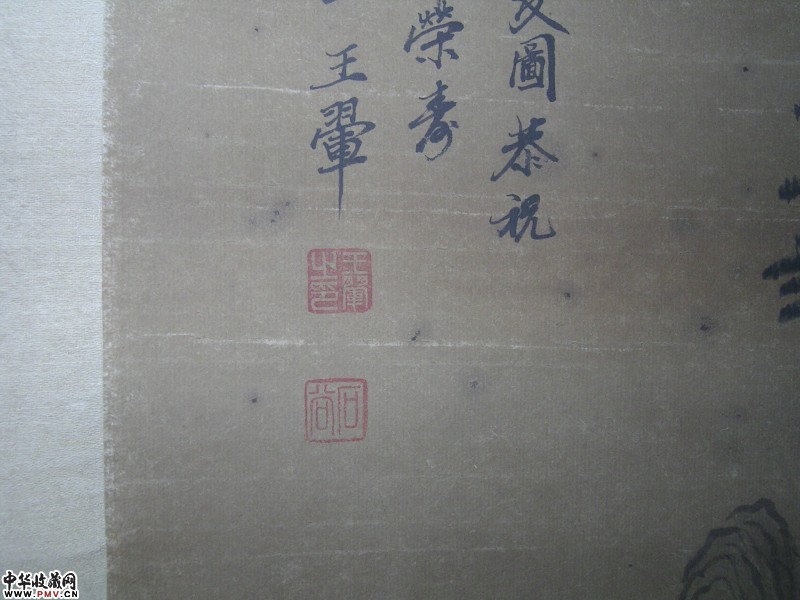 圖恭祝
榮壽
王翬
王翬之印
石谷
中华收藏网
www.PMV.CN